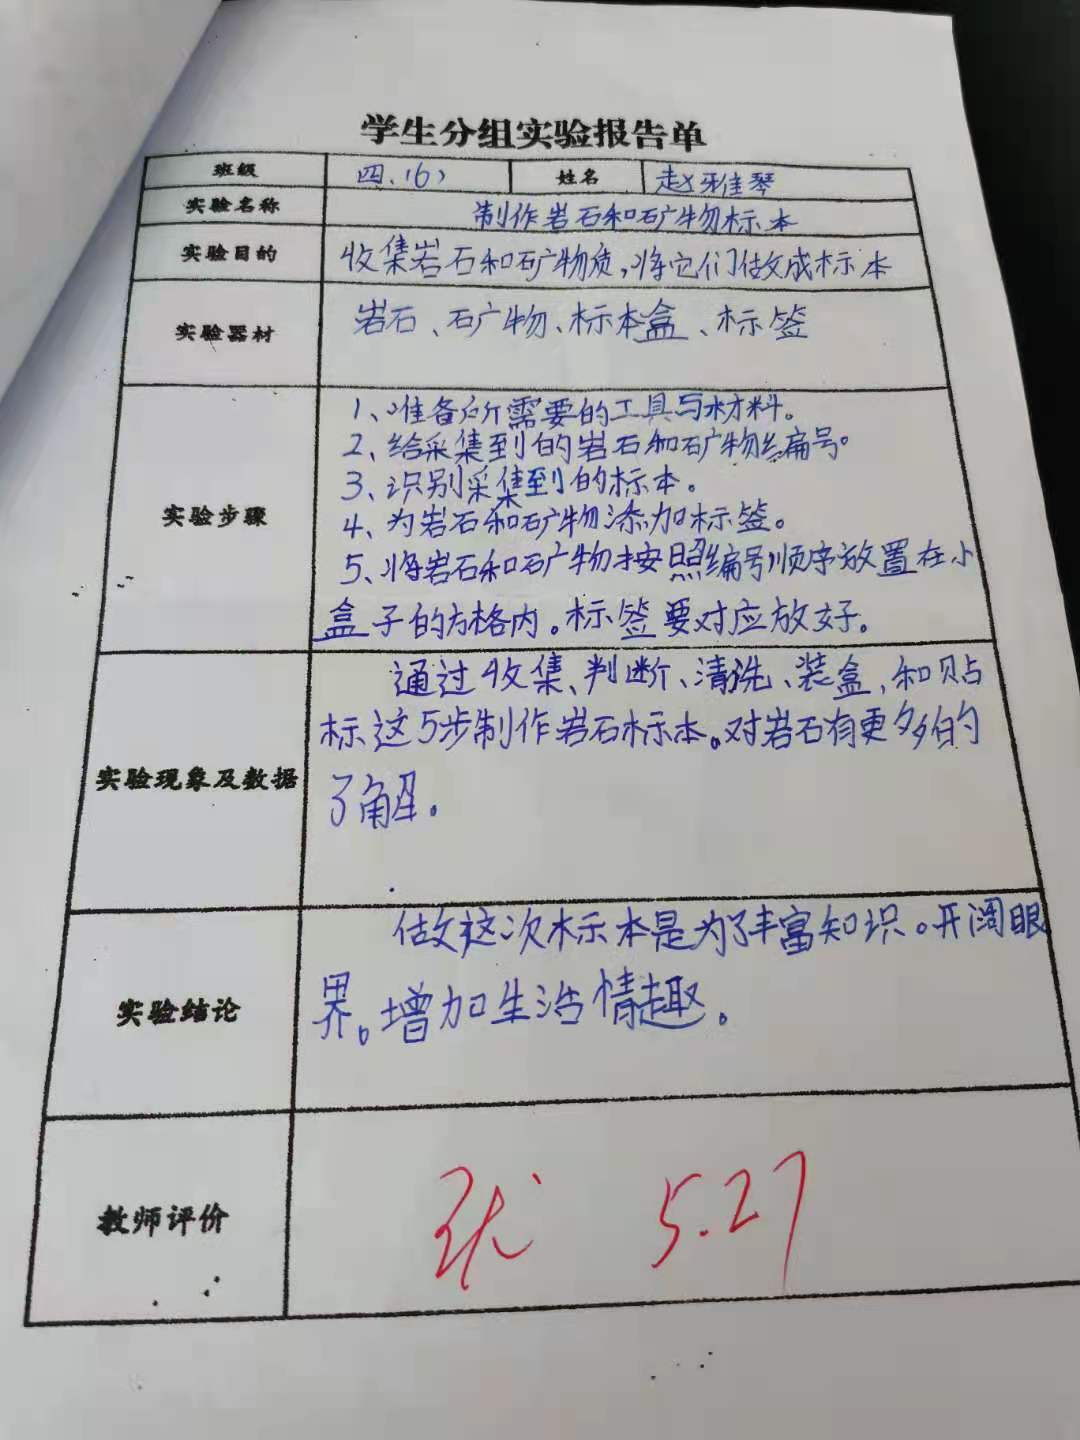 学生分组实验报告单
班级 四、(6) 姓名 赵雅琴
实验名称 制作岩石和矿物标本
实验目的 收集岩石和矿物质,将它们做成标本
实验器材 岩石、矿物、标本盒、标签
1、准备所需要的工具与材料。
2、给采集到的岩石和矿物编号。
3、识别采集到的标本。
实验步骤
4、为岩石和矿物添加标签。
5、将岩石和矿物按照编号顺序放置在小
盒子的方格内。标签要对应放好。
通过收集、判断、清洗、装盒、和贴
标这5步制作岩石标本。对岩石有更多的
实验现象及数据
了解。
做这次标本是为了丰富知识。开阔眼
实验结论
界。增加生活情趣。
教师评价 优 5.27